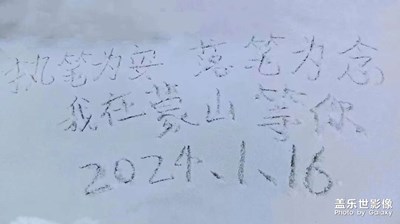 执笔为安 落笔为念
我在蒙山等你
2024.1.16
盖乐世影像
Photo by Galaxy